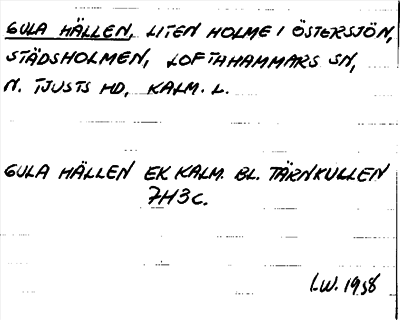 GULA HÄLLEN, LITEN HOLME I ÖSTERSJÖN,
STÄDSHOLMEN, LOFTAHAMMARS SN,
N. TJUSTS HD, KALM. L.
GULA HÄLLEN EK KALM. BL. TÄRNKULLEN
7H3C.
I.W. 1958